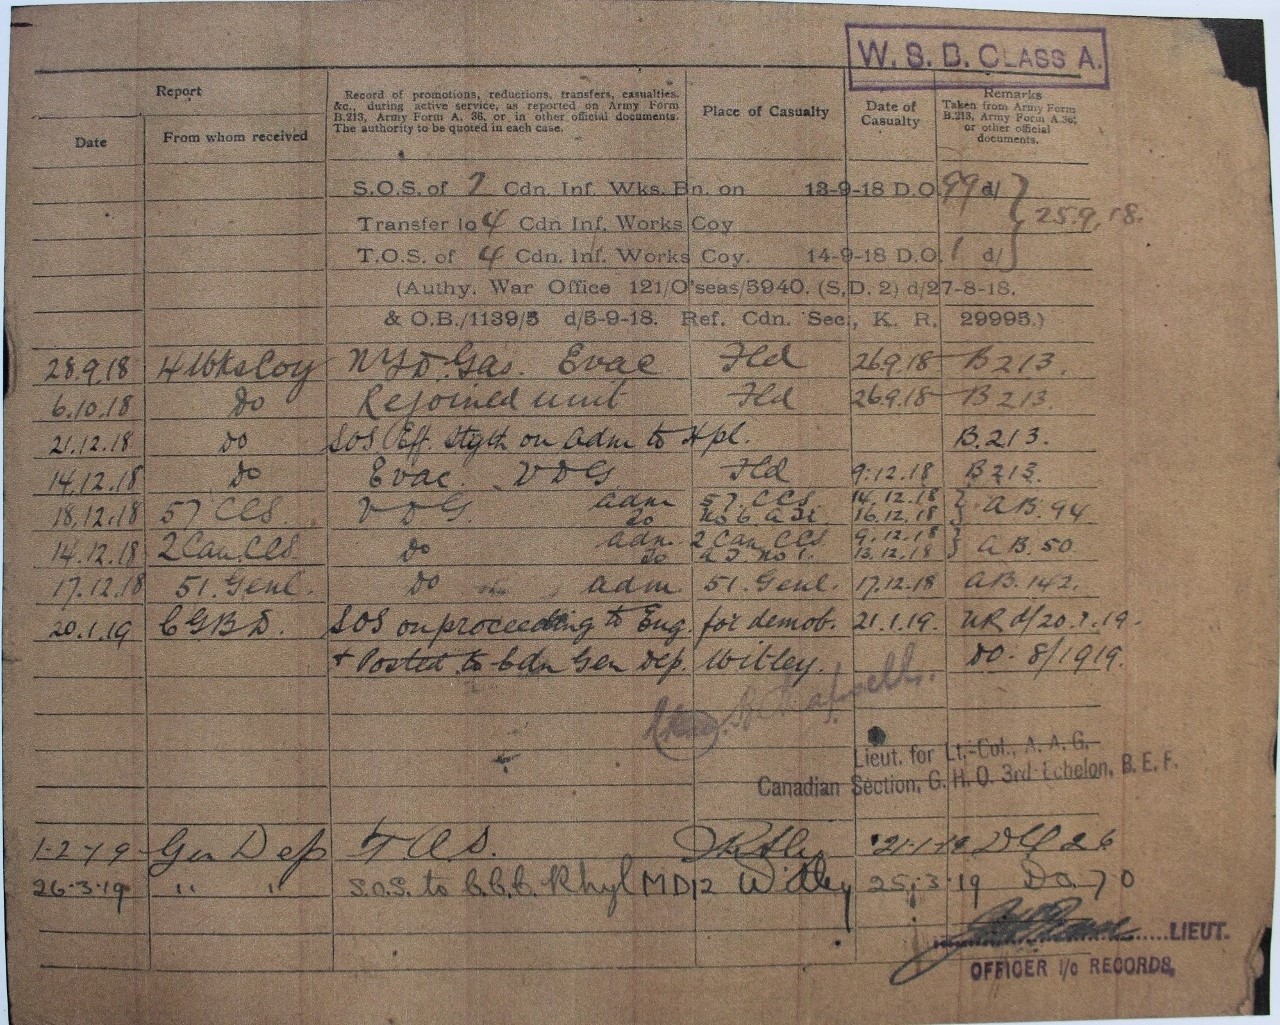 W. S. B. CLASS A.
Report
Date
From whom received
Record of promotions, reductions, transfers, casualties, &c., during active service, as reported on Army Form B.213, Army Form A. 36, or in other official documents. The authority to be quoted in each case.
Place of Casualty
Date of Casualty
Remarks
Taken from Army Form B.213, Army Form A.36, or other official documents.
S.O.S. of 7 Cdn. Inf. Wks. Bn. on 13-9-18 D.O. 99 d/
Transfer to 4 Cdn Inf. Works Coy
25.9.18.
T.O.S. of 4 Cdn. Inf. Works Coy. 14-9-18 D.O. 1 d/
(Authy. War Office 121/O'seas/5940. (S.D. 2) d/27-8-18.
& O.B./1139/5 d/5-9-18. Ref. Cdn. Sec., K. R. 29995.)
28.9.18 4 Wks Coy NYD. Gas. Evac Fld 26.9.18 B 213.
6.10.18 Do Rejoined unit Fld 26.9.18 B 213.
21.12.18 Do SOS Eff. Stgth on adm to Hpl. B.213.
14.12.18 Do Evac. VDG Fld 9.12.18 B 213.
18.12.18 57 CCS. VDG. adm 57. CCS 14.12.18 A B. 94
To No 6. A.T. 16.12.18
14.12.18 2 Can. CCS Do adm. 2 Can CCS 9.12.18 A B. 50.
To A T. No 1. 13.12.18
17.12.18 51. Genl. Do adm 51. Genl. 17.12.18 AB. 142.
20.1.19 CGBD. SOS on proceeding to Eng. for demob. 21.1.19. NR d/20.1.19.
+ Posted to Cdn Gen Dep. Witley. DO. 8/1919.
Lieut. for Lt.-Col., A. A. G.
Canadian Section, G. H. Q. 3rd Echelon, B. E. F.
1-2-19 Gen Dep T O S.
26.3.19 " " S.O.S. to C.C.C. Rhyl MD12 Witley 25.3.19 Do. 70
LIEUT.
OFFICER I/c RECORDS,